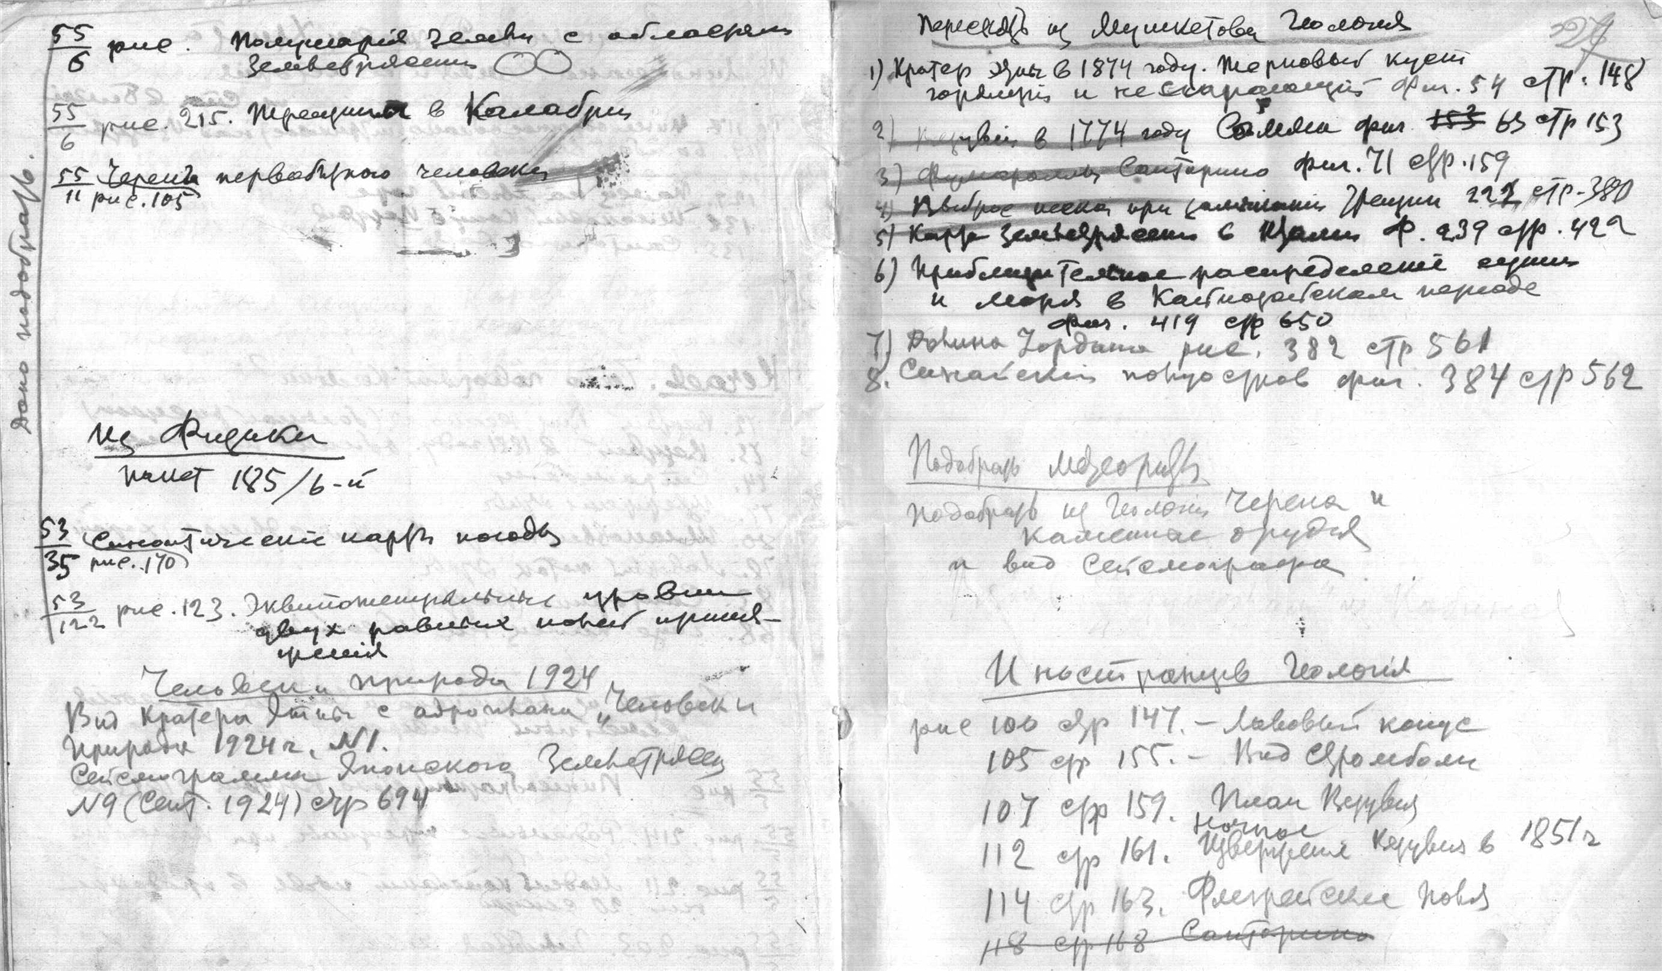 55/6 рис. Полушарія Земли с областями
Землетрясения
55/6 рис. 215. Трещина в Калабрии
55/11 Черепъ первобытного человека
рис. 105
Дано подобрать.
Из Физики
пакет 185/6-й
53/35 Синоптическіе карты погоды
рис. 170
53/122 рис. 123. Эквипотенціальные уровни
двух равных полей притя-
женія
Человек и природа 1924
Вид Кратера Этны с аэроплана „Человек и
Природа 1924 г. N1.
Сейсмограмма Японского Землетрясен
N9 (Сент. 1924) стр 694
274
Переснять из Мушкетова Геологія
1) Кратер Этны в 1874 году. Терновый куст
горящій и не сгорающій Фиг. 54 стр. 148
2) Везувій в 1774 году Сомма фиг. 153 63 стр 153
3) Фумароллы Санторино Фиг. 71 стр. 159
4) Выброс песка при Греции 222 стр. 380
5) Карта Землетрясения в Ф. 239 стр. 422
6) Приблизительное распределеніе суши
и моря в Кайнозойском періоде
фиг. 419 стр 650
7) Долина Іордана рис. 382 стр 561
8. Синайскій полуостров фиг. 384 стр 562
Подобрать метеориты
Подобрать из Геологіи Черепа и
каменные орудія
и вид Сейсмографа
Иностранцев Геологія
рис 100 стр 147. – Лавовый конус
105 стр 155. – Вид Стромболи
107 стр 159. План Везувія
ночное
112 стр 161. Изверженіе Везувія в 1851 г
114 стр 163. Флегрейские поля
118 стр 168 Санторино